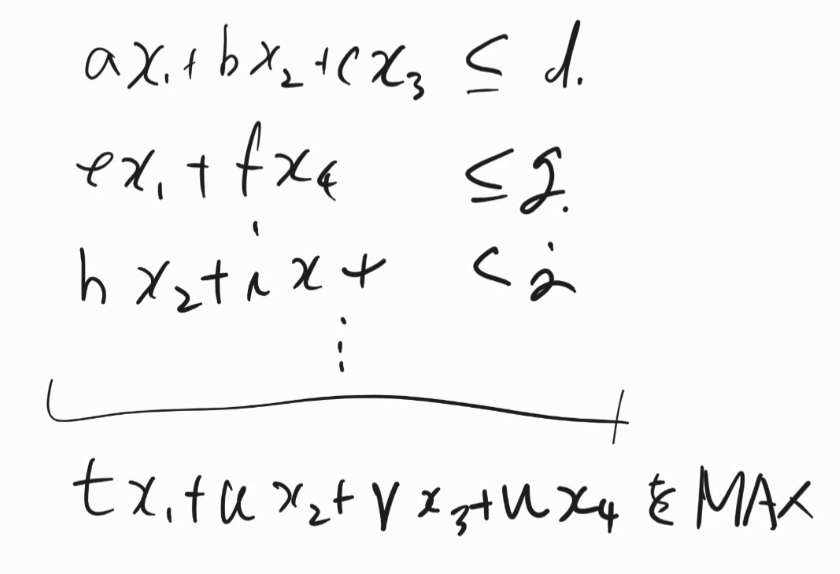 ax₁ + bx₂ + cx₃ ≤ d.
ex₁ + fx₄ ≤ g.
hx₂ + ix + < j
⋮
tx₁ + ux₂ + vx₃ + ux₄ を MAX